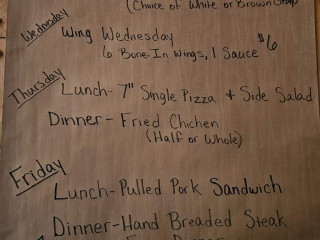 (Choice of White or Brown
Wednesday
Wing Wednesday $6
6 Bone-In Wings, 1 Sauce
Thursday
Lunch- 7" Single Pizza + Side Salad
Dinner- Fried Chichen
(Half or Whole)
Friday
Lunch-Pulled Pork Sandwich
Dinner-Hand Breaded Steak